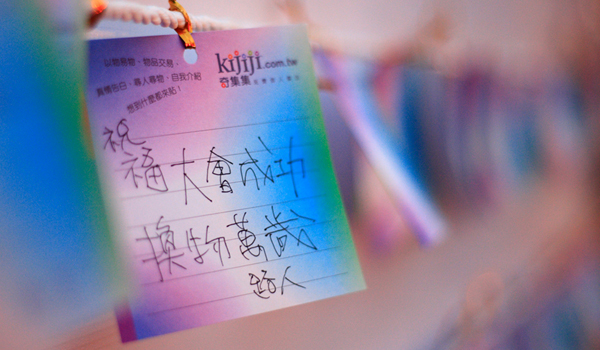 以物易物、物品交易、
真情告白、尋人尋物、自我介紹
想到什麼都來貼!
kijiji.com.tw
奇集集
祝
福大會成功
換物萬歲
路人